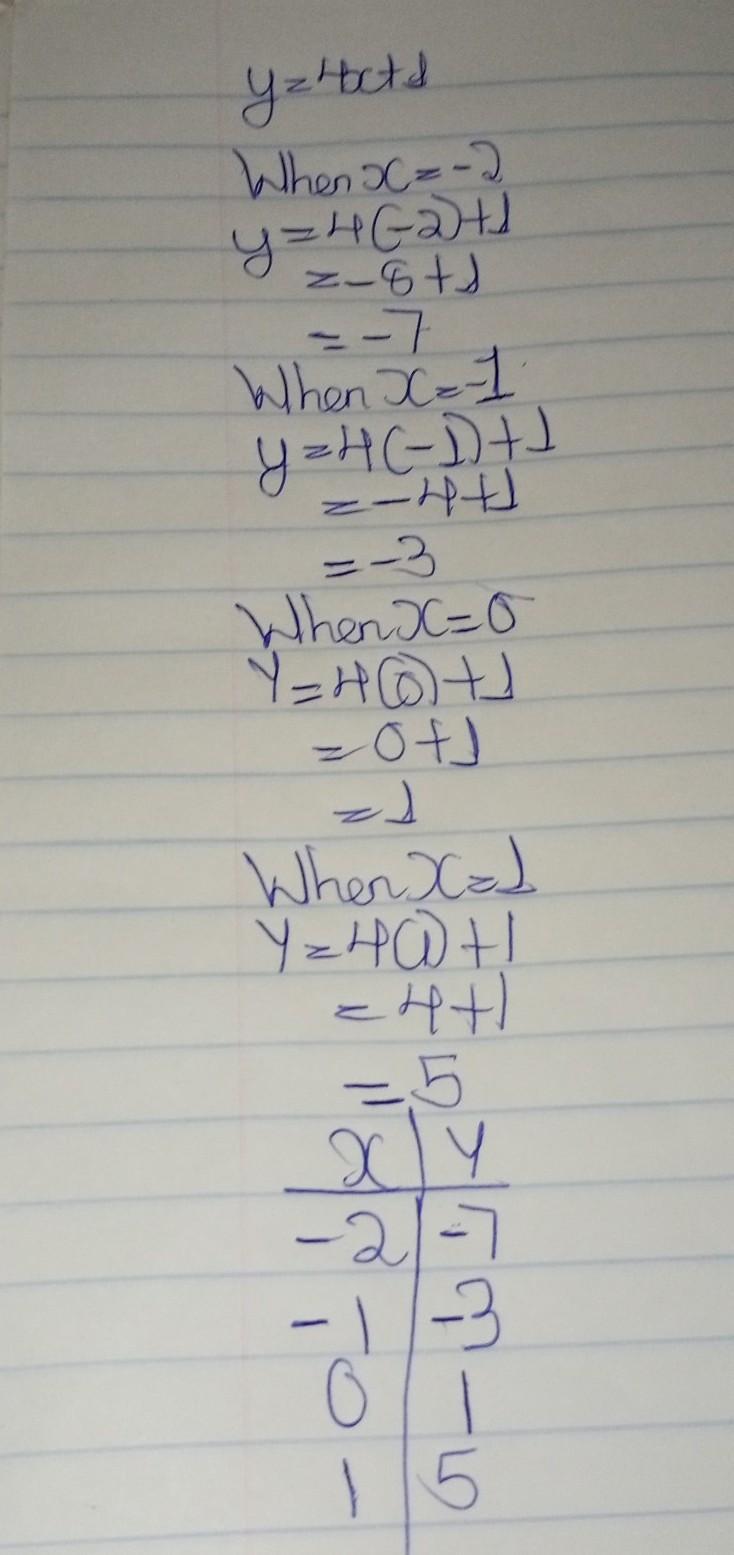 y=4x+1
When x=-2
y=4(-2)+1
=-8+1
=-7
When x=-1
y=4(-1)+1
=-4+1
=-3
When x=0
Y=4(0)+1
=0+1
=1
When x=1
Y=4(1)+1
=4+1
=5
x | Y
-2 | -7
-1 | -3
0 | 1
1 | 5